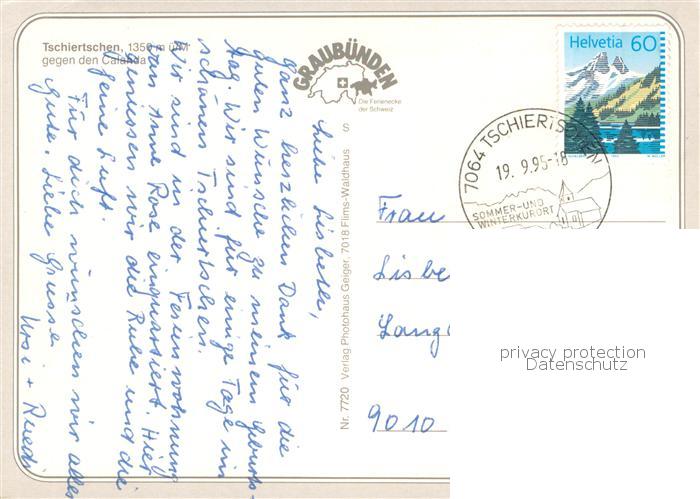 Tschiertschen, 1350 m ü/M
gegen den Calanda
GRAUBÜNDEN
Die Ferienecke
der Schweiz
S
Nr. 7720 Verlag Photohaus Geiger, 7018 Flims-Waldhaus
Helvetia 60
7064 TSCHIERTSCHEN
19. 9.95-18
SOMMER-UND
WINTERKURORT
Liebe Lisbeth,
Ganz herzlichen Dank für die
guten Wünsche zu meinem Geburts-
tag. Wir sind für einige Tage im
schönen Tschiertschen.
Wir sind in der Ferienwohnung
von Anne Rose einquartiert. Hier
geniessen wir die Ruhe und die
feine Luft.
Für dich wünschen wir alles
Gute. Liebe Grüsse
Ursi + Ruedi
Frau
Lisbe
Lang
9010
privacy protection
Datenschutz